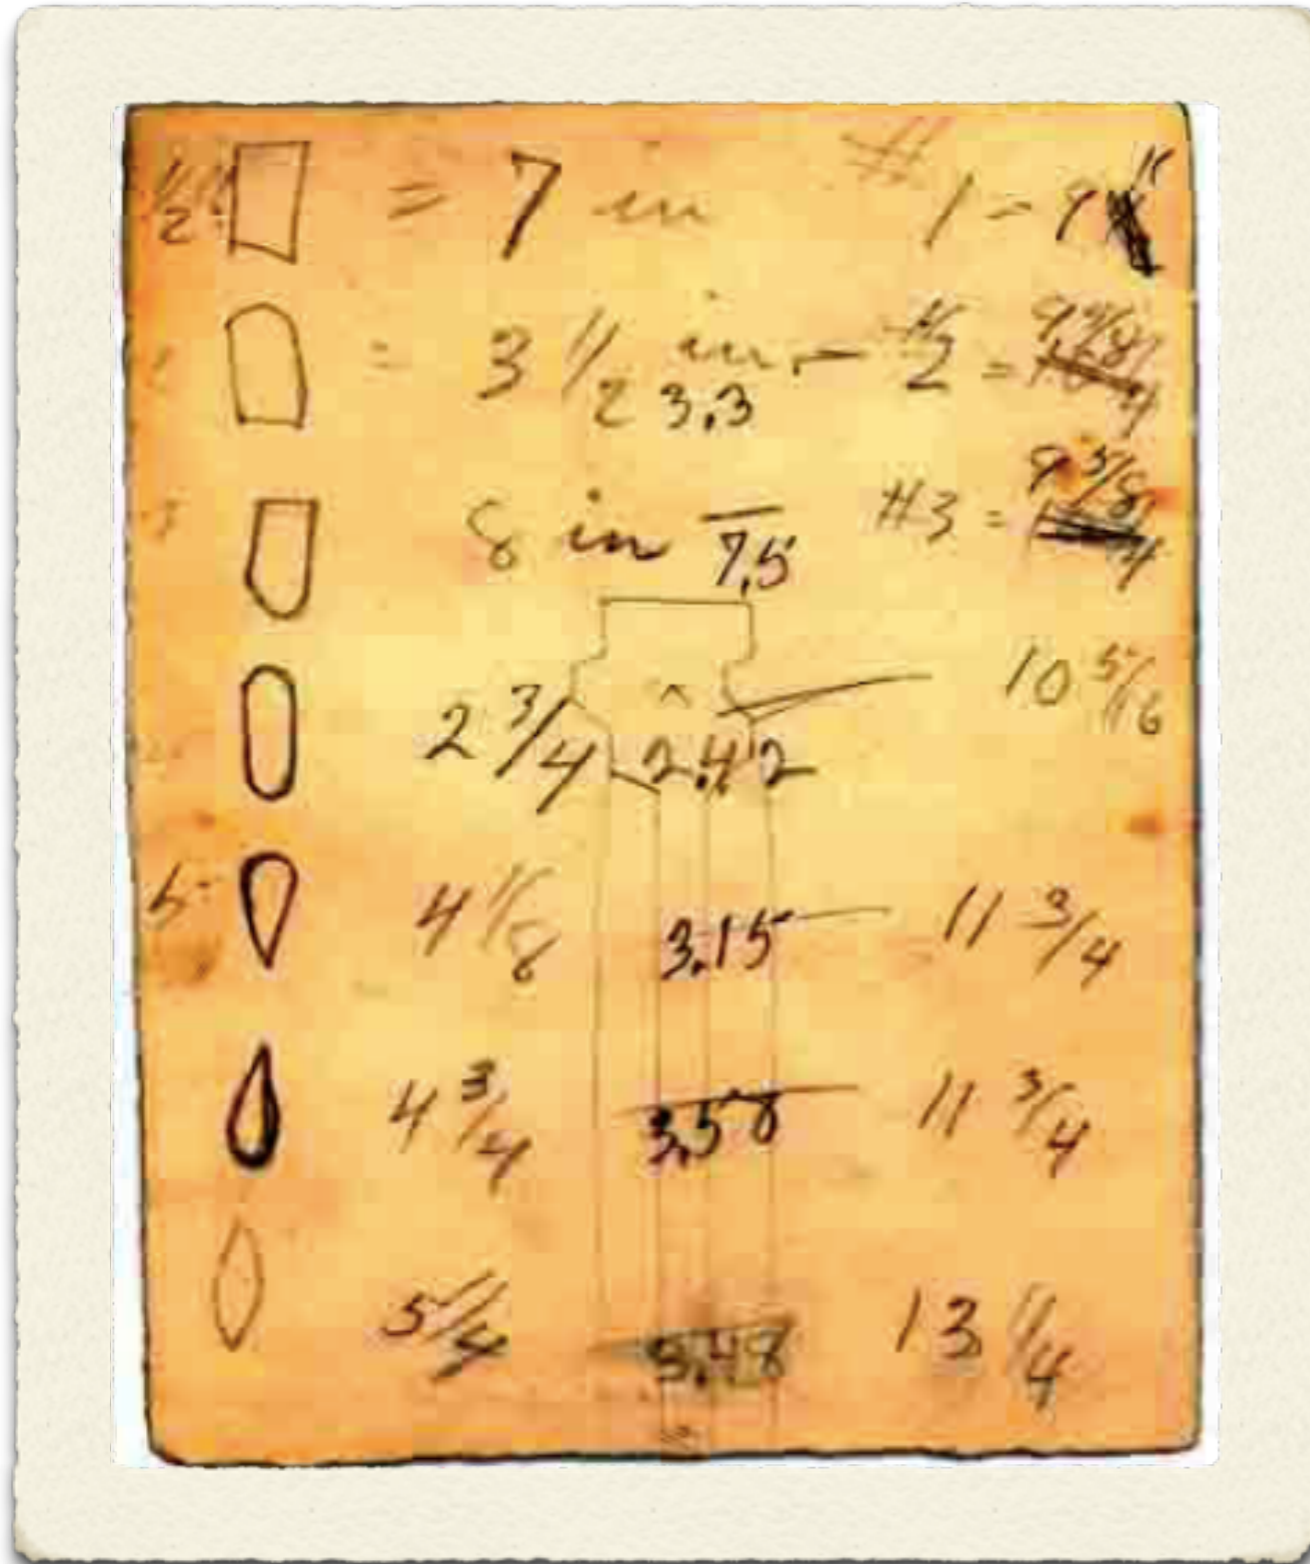 = 7 in 1 - 9
= 3 1/2 in. - #2 = 9 5/8
3.3
8 in 7.5 #3 = 9 5/8
2 3/4 2.42 10 5/16
5 4 1/8 3.15 11 3/4
4 3/4 3.58 11 3/4
5 1/4 3.48 13 1/4